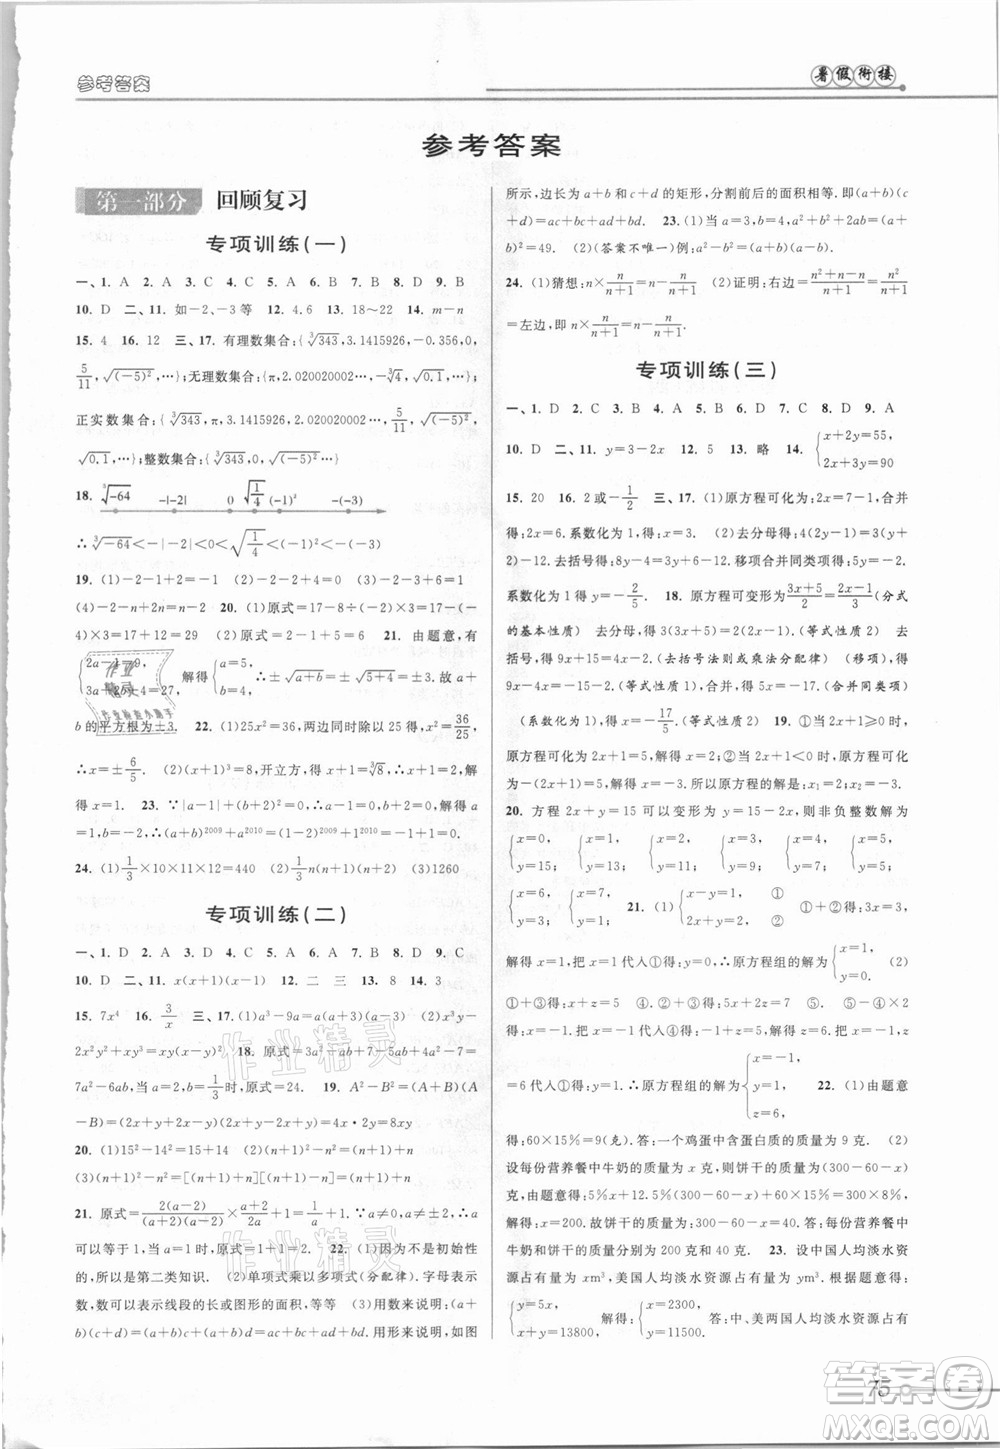 参考答案
暑假衔接
参考答案
第一部分 回顾复习
专项训练(一)
一、1. A 2. A 3. C 4. C 5. A 6. A 7. B 8. D 9. B
10. D 二、11. 如-2、-3等 12. 4.6 13. 18~22 14. -1
15. 4 16. 12 三、17. 有理数集合:{∛343, 3.1415926, -∛8,
5/11, √(-5)², …};无理数集合:{π, 2.020020002…, √0.1, …};
正实数集合:{∛343, π, 3.1415926, 2.020020002…, 5/11, √(-5)²,
√0.1, …};整数集合:{∛343, -∛8, √(-5)², …}
18. ∛-64 -|-2| 0 √1/4 (-1)² -(-3)
∴∛-64<-|-2|<0<√1/4<(-1)²<-(-3)
19. (1)-2-1+2=-1 (2)-2+2+0=0 (3)-2-3+6=1
(4)-2×3×(-2)=12 20. (1)原式=17-8÷(-2)×3=17-(-
4)×3=29 (2)原式=2-1+5=6 21. 由题意,有
{2a-1=9, 3a+2b+4=27, 解得{ ∴± =± =±3.故a+
b的平方根为±3. 22. (1)25x²=36,两边同时除以25得,x²=36/25
∴x=±6/5 (2)(x+1)³=8,开立方得:x+1=∛8,x+1=2,解
得x=1 23. ∵|a-1|+(b+2)²=0,∴a-1=0,b+2=0,解得a
=1,b=-2,∴(a+b)²⁰⁰⁹+a²⁰¹⁰=(1-2)²⁰⁰⁹+1²⁰¹⁰=-1+1=0.
24. (1)1/3×10×11×12=440 (2)1/3n(n+1)(n+2) (3)1260
专项训练(二)
一、1. D 2. A 3. D 4. C 5. A 6. A 7. D 8. D 9. C
10. D 二、11. x(x+1)(x-1) 12. 二 三 13. 8 14. 3
15. 7x⁴ 16. 3/x 三、17. (1)a³-9a=a(a+3)(a-3) (2)x³y-
2x²y²+xy³=xy(x-y)² 18. 原式=3a²+a³-a³+4a²-2a-6a=
7a²-8a,当a=-1时,原式=15,当a=1/3时,原式=24. 19. A²-B²=(A+B)(A
-B)=(2x+y+2x-y)(2x+y-2x+y)=4x·2y=8xy
20. (1)15²-14²=15+14 (2)(n+1)²-n²=(n+1)+n (3)∵
(n+1)²-n²=[(n+1)+n][(n+1)-n]=(n+1)+n
21. 原式=2(a-2)/(a+2)(a-2)×a+2/2a+1=1/a+1,∵a≠0,a≠±2,∴a
可以等于1,当a=1时,原式=1+1=2. 22. (1)不是初始性
的,所以是第二类知识. (2)单项式乘以多项式(分配律).字母表示
数、数可以表示线段的长或图形的面积,等等 (3)用数来说明:(a+
b)(c+d)=a(c+d)+b(c+d)=ac+ad+bc+bd.用形来说明,如图
所示,边长为a+b和c+d的矩形,分割前后的面积相等.即(a+b)(c
+d)=ac+ad+bc+bd. 23. (1)当a=3,b=4,a²+b²+2ab=(a+
b)²=49. (2)(答案不唯一)例:a²-b²=(a+b)(a-b).
24. (1)猜想:n×n/n+1=n-n/n+1 (2)证明:右边=n²+n-n/n+1=n²/n+1
=左边,即n×n/n+1=n-n/n+1.
专项训练(三)
一、1. D 2. C 3. A 4. D 5. B 6. D 7. C 8. D 9. A
10. D 二、11. y=3-2x 12. 5 13. 略 14. {x+2y=55, x+y=90
15. 20 16. 2或-1/2 三、17. (1)原方程可化为:2x=7-1,合并
得:2x=6.系数化为1得:x=3. (2)去分母得:4(2y-1)=3(y+
2)-12.去括号得:8y-4=3y+6-12.移项合并同类项得:5y=-2.
系数化为1得y=-2/5 18. 原方程可变形为3x+5/2=2x-1/3(分式
的基本性质) 去分母,得3(3x+5)=2(2x-1).(等式性质2) 去
括号,得9x+15=4x-2.(去括号法则或乘法分配律) (移项),得
9x-4x=-15-2.(等式性质1) 合并,得5x=-17.(合并同类项)
(系数化为1),得x=-17/5.(等式性质2) 19. ①当2x+1≥0时,
原方程可化为2x+1=5,解得x=2 ②当2x+1<0时,原方程可化为
-(2x+1)=5,解得x=-3. 所以原方程的解是:x₁=2,x₂=-3.
20. 方程2x+y=15可以变形为y=15-2x,则非负整数解为
{x=0, y=15; {x=1, y=13; {x=2, y=11; {x=3, y=9; {x=4, y=7; {x=5, y=5;
{x=6, y=3; {x=7, y=1. 21. (1){x-y=1, ① 2x+y=2, ② ①+②得:3x=3,
解得x=1,把x=1代入①得:y=0.∴原方程组的解为{x=1, y=0. (2)
①+③得:x+z=5④ ④-②得:2z=4 解得z=2.把z=2代入④
得:x+2=1解得x=-1.把x=-1代入①得:-1+y=5解得:y
=6代入①得:∴原方程组的解为{x=-1, y=6, z=2 22. (1)由题意
得:60×15%=9(克).答:一个鸡蛋中含蛋白质的质量为9克. (2)
设每份营养餐中牛奶的质量为x克,则饼干的质量为(300-60-x)
克,由题意得:5%x+12.5%(300-60-x)+60×15%=300×8%
解得:x=200.故饼干的质量为:300-60-x=40.答:每份营养餐中
牛奶和饼干的质量分别为200克和40克. 23. 设中国人均淡水资
源占有量为xm³,美国人均淡水资源占有量为ym³.根据题意得:
{y=5x, x+y=13800, 解得:{x=2300, y=11500. 答:中、美两国人均淡水资源占有
75
作业精灵
作业精灵
答案卷
MXQE.COM